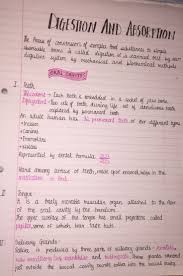 DIGESTION AND ABSORPTION
The Process of conversion of complex food substances to simple
absorbable forms is called digestion & is carried out by our
digestive system by mechanical and biochemical methods
ORAL CAVITY
I Teeth
Thecodont → Each tooth is embedded in a socket of jaw bone
Diphyodont → Two sets of teeth during life set of deciduous teeth
replaced by permanent teeth
An adult human has 32 permanent teeth of four different types
Incisors
Canine
Premolars
Molars
Represented by dental formula
Hard chewing surface of teeth, made of enamel helps in the
mastication of food
Tongue
It is a freely movable muscular organ attached to the floor
of the oral cavity by the frenulum
The upper surface of the tongue has small projections called
papillae, some of which bear taste
Salivary Glands
Saliva is produced by three pairs of salivary glands
and
just outside the buccal cavity